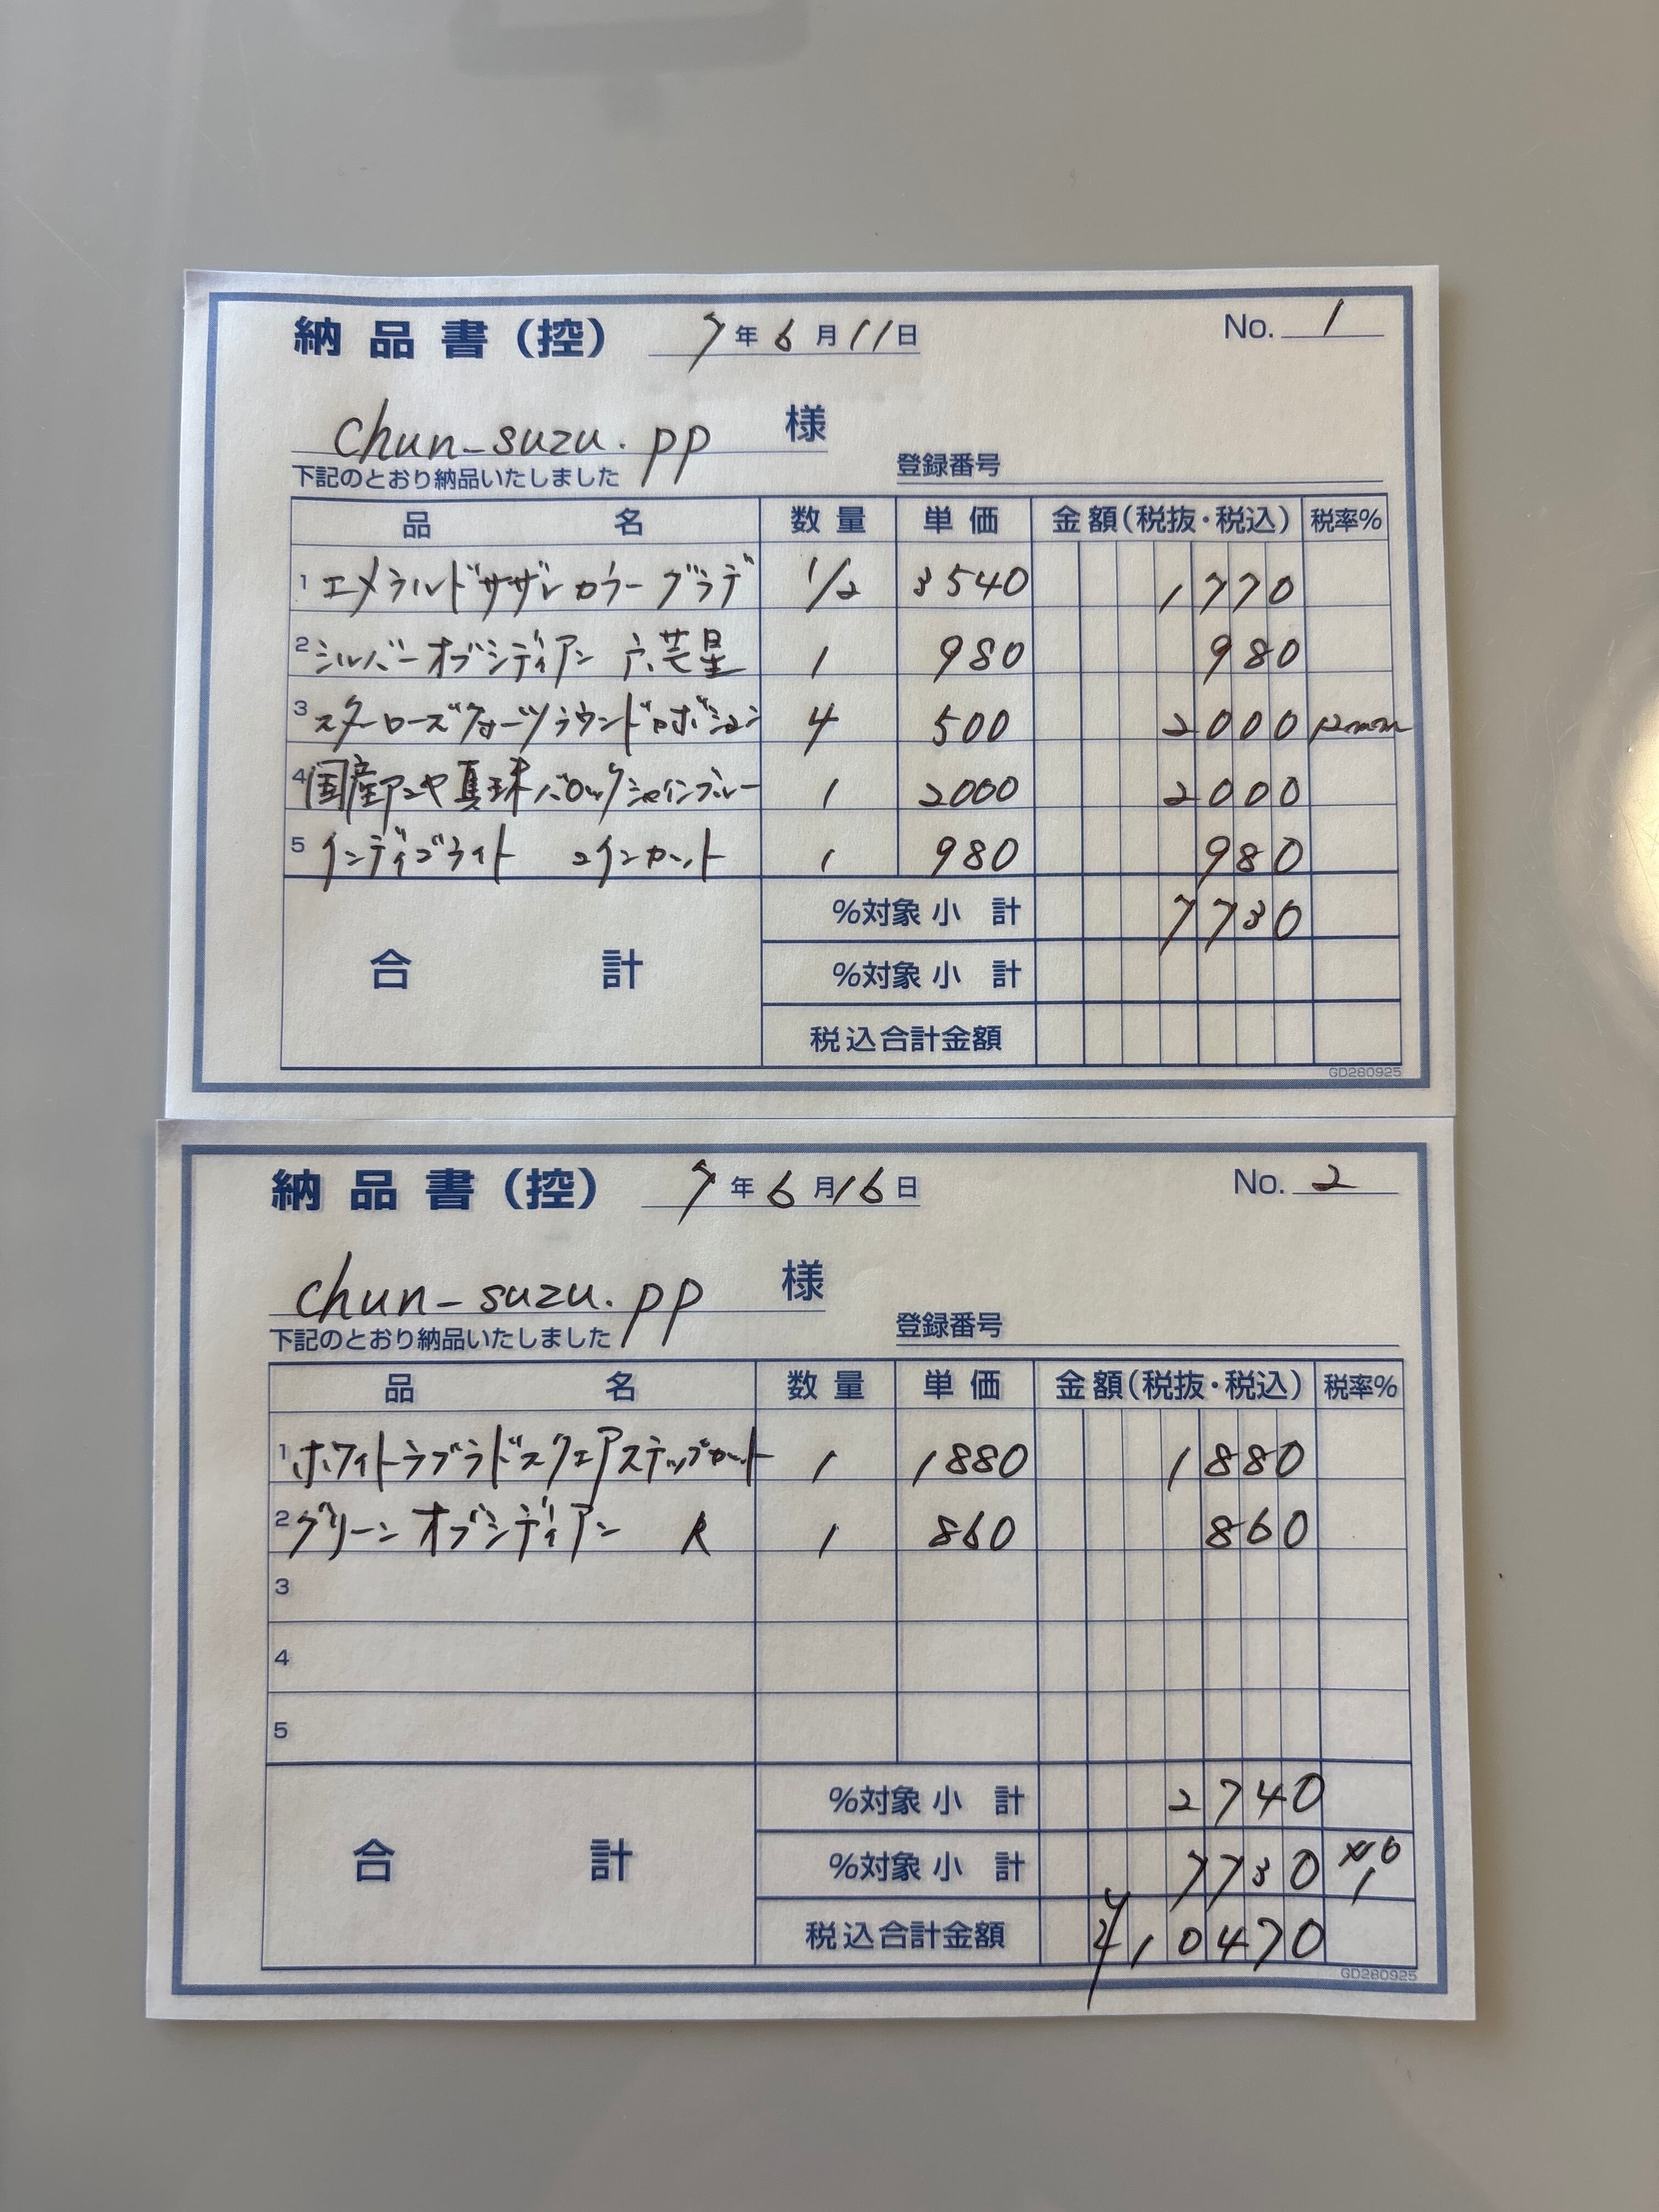 納品書(控) 7年6月11日 No. 1
chun-suzu.pp 様
下記のとおり納品いたしました 登録番号
品名 数量 単価 金額(税抜・税込) 税率%
1 エメラルドサザレカラーグラデ 1/2 3540 1770
2 シルバーオブシディアン 六芒星 1 980 980
3 スターローズクォーツラウンドロボション 4 500 2000 12mm
4 国産アコヤ真珠バロックシャインブルー 1 2000 2000
5 インディゴライト コインカット 1 980 980
%対象小計 7730
合計 %対象小計
税込合計金額
GD280925
納品書(控) 7年6月16日 No. 2
chun-suzu.pp 様
下記のとおり納品いたしました 登録番号
品名 数量 単価 金額(税抜・税込) 税率%
1 ホワイトラブラドスクエアステップカット 1 1880 1880
2 グリーンオブシディアン R 1 860 860
3
4
5
%対象小計 2740
合計 %対象小計 7730
税込合計金額 ¥10470
GD280925